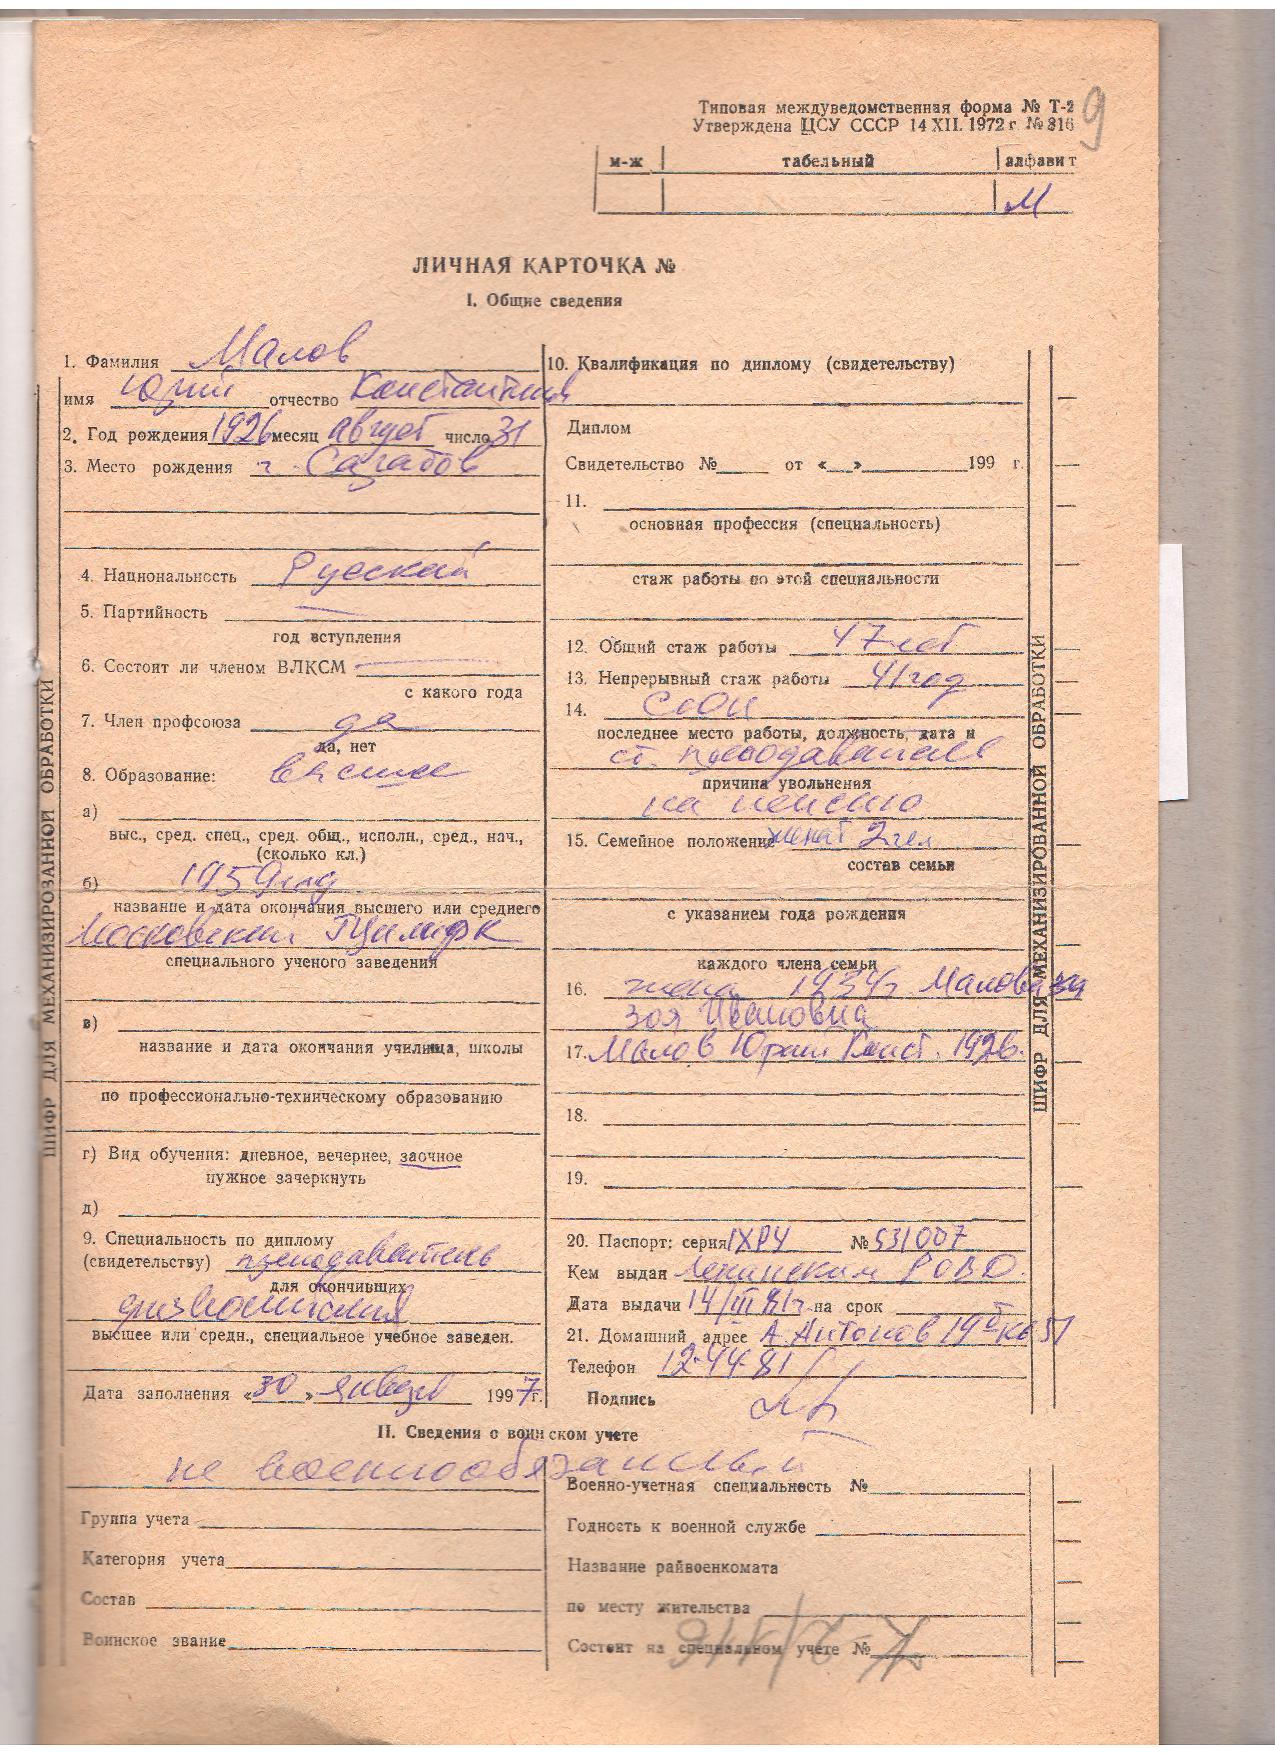 Типовая междуведомственная форма № Т-2
Утверждена ЦСУ СССР 14 XII. 1972 г № 816
9
м-ж табельный алфавит
М
ЛИЧНАЯ КАРТОЧКА №
I. Общие сведения
1. Фамилия Малов
имя Юрий отчество Константин
2. Год рождения 1926 месяц август число 31
3. Место рождения г. Саратов
4. Национальность Русский
5. Партийность —
год вступления
6. Состоит ли членом ВЛКСМ —
с какого года
7. Член профсоюза да
да, нет
8. Образование: высшее
а)
выс., сред. спец., сред. общ., исполн., сред., нач.,
(сколько кл.)
б) 1959 год
название и дата окончания высшего или среднего
Московский
специального ученого заведения
в)
название и дата окончания училища, школы
по профессионально-техническому образованию
г) Вид обучения: дневное, вечернее, заочное
нужное зачеркнуть
д)
9. Специальность по диплому
(свидетельству) преподаватель
для окончивших
физвоспитания
высшее или средн., специальное учебное заведен.
Дата заполнения «30» января 1997 г.
10. Квалификация по диплому (свидетельству)
Диплом
Свидетельство № от « » 199 г.
11.
основная профессия (специальность)
стаж работы по этой специальности
12. Общий стаж работы 47 лет
13. Непрерывный стаж работы 41 год
14.
последнее место работы, должность, дата и
ст. преподаватель
причина увольнения
на пенсию
15. Семейное положение женат 2 чел
состав семьи
с указанием года рождения
каждого члена семьи
16. жена 1934 г Малова
Зоя Ивановна
17. Малов Юрий Конст. 1926.
18.
19.
20. Паспорт: серия IXРУ № 531007
Кем выдан Ленинским РОВД
Дата выдачи 14/III 81г. на срок
21. Домашний адрес А. Антонов 19 кв 51
Телефон 12-44-81
Подпись
II. Сведения о воинском учете
не военнообязанный
Группа учета
Категория учета
Состав
Воинское звание
Военно-учетная специальность №
Годность к военной службе
Название райвоенкомата
по месту жительства
Состоит на специальном учете №
ШИФР ДЛЯ МЕХАНИЗИРОВАННОЙ ОБРАБОТКИ
ШИФР ДЛЯ МЕХАНИЗИРОВАННОЙ ОБРАБОТКИ